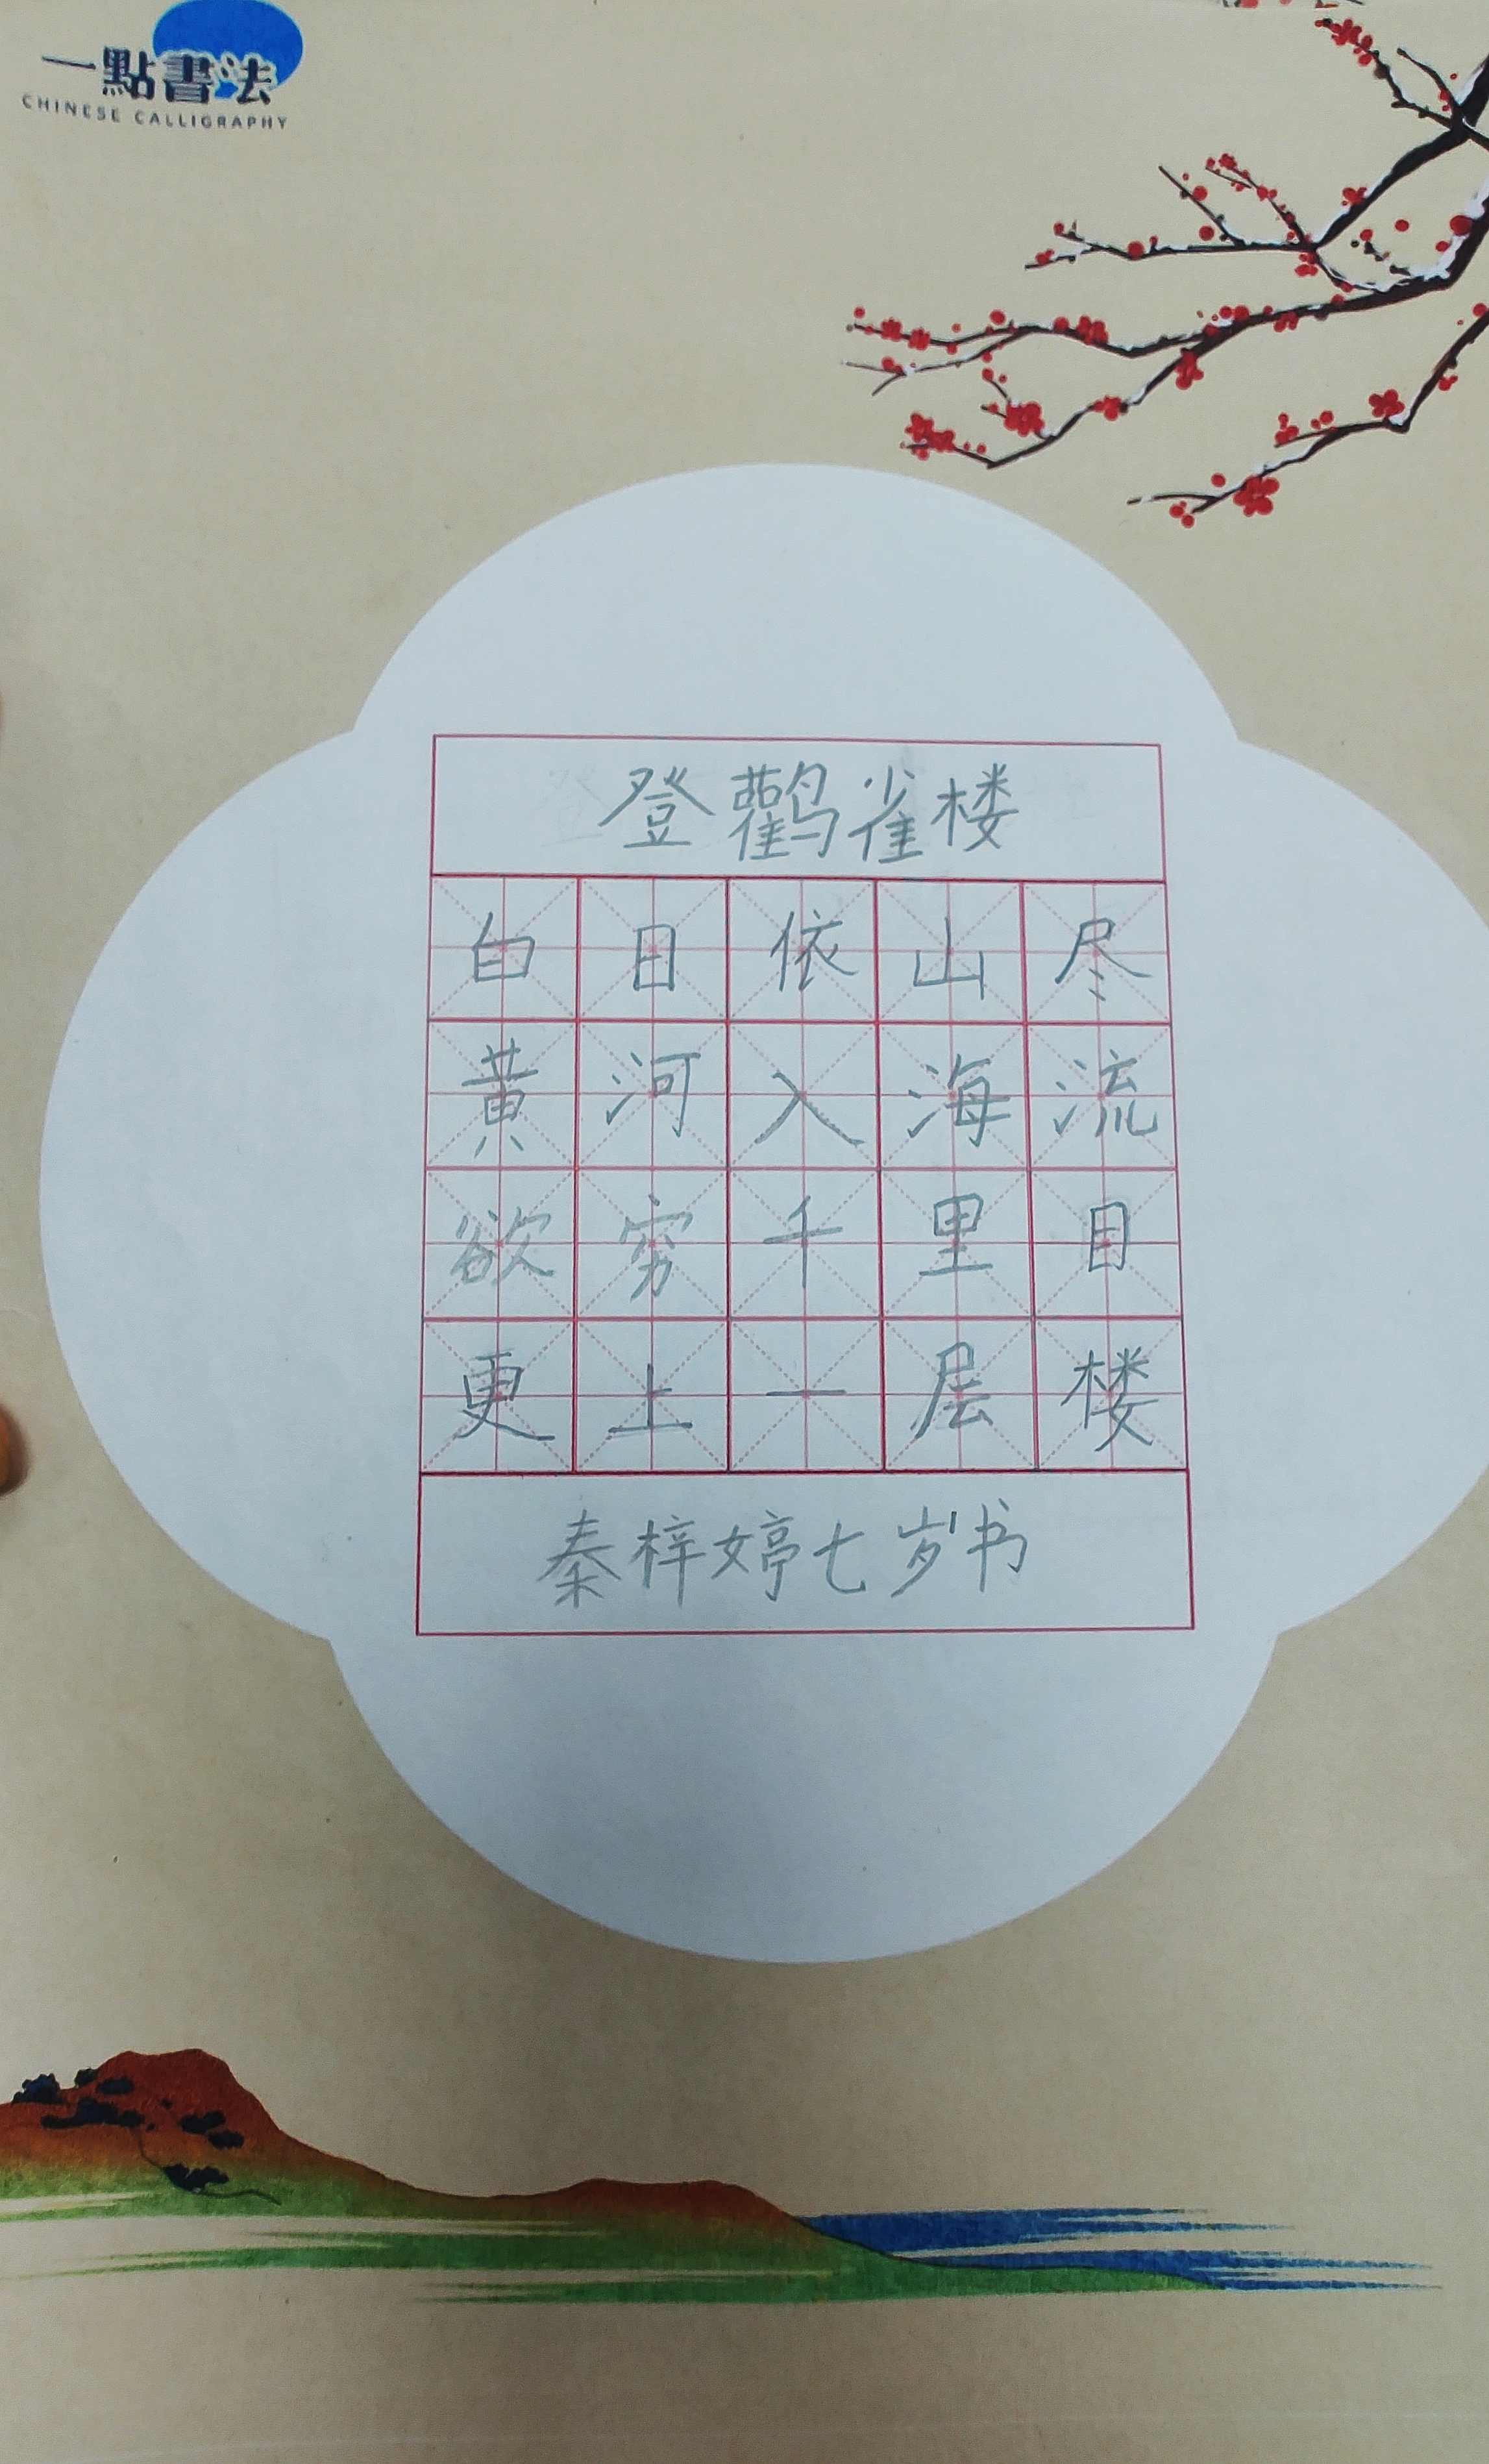 一點書法
CHINESE CALLIGRAPHY
登鹳雀楼
白日依山尽
黄河入海流
欲穷千里目
更上一层楼
秦梓婷七岁书